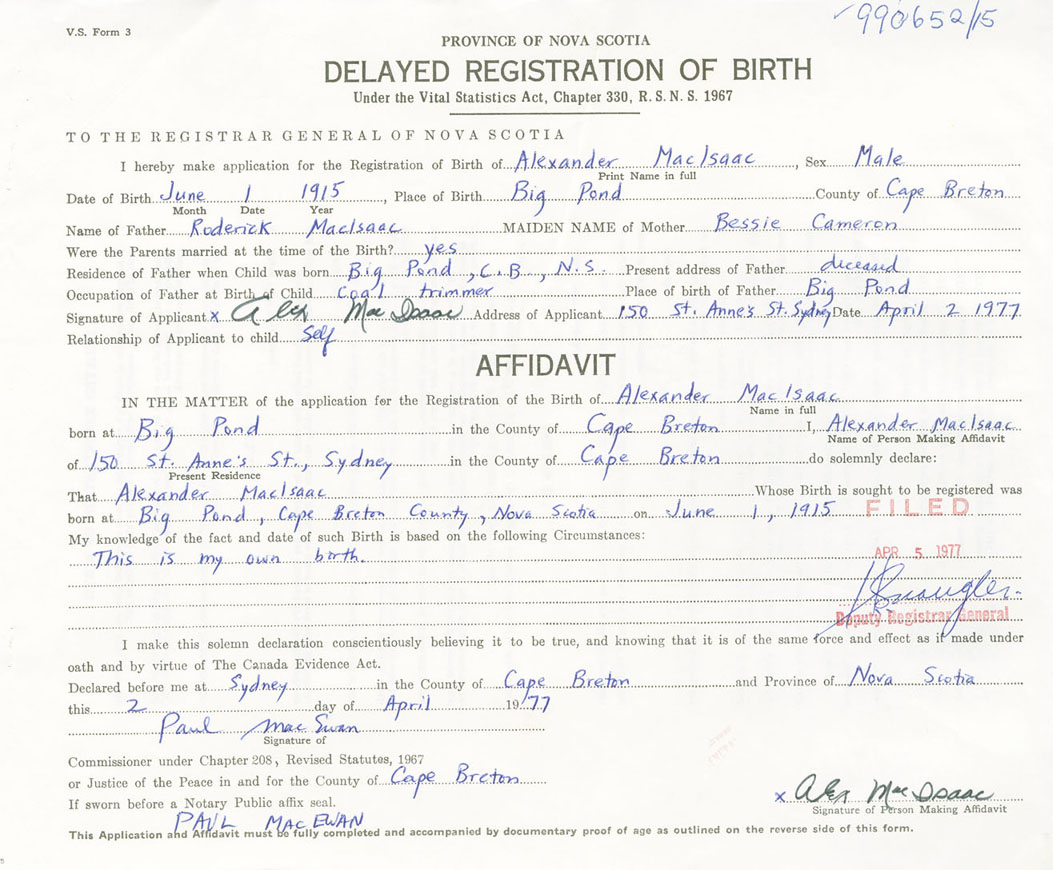 V.S. Form 3
990652/15
PROVINCE OF NOVA SCOTIA
DELAYED REGISTRATION OF BIRTH
Under the Vital Statistics Act, Chapter 330, R.S.N.S. 1967
TO THE REGISTRAR GENERAL OF NOVA SCOTIA
I hereby make application for the Registration of Birth of Alexander MacIsaac, Sex Male
Print Name in full
Date of Birth June 1 1915, Place of Birth Big Pond County of Cape Breton
Month Date Year
Name of Father Roderick MacIsaac MAIDEN NAME of Mother Bessie Cameron
Were the Parents married at the time of the Birth? yes
Residence of Father when Child was born Big Pond, C.B., N.S. Present address of Father deceased
Occupation of Father at Birth of Child Coal trimmer Place of birth of Father Big Pond
Signature of Applicant x Alex MacIsaac Address of Applicant 150 St. Anne's St. Sydney Date April 2 1977
Relationship of Applicant to child Self
AFFIDAVIT
IN THE MATTER of the application for the Registration of the Birth of Alexander MacIsaac
Name in full
born at Big Pond in the County of Cape Breton I, Alexander MacIsaac
Name of Person Making Affidavit
of 150 St. Anne's St., Sydney in the County of Cape Breton do solemnly declare:
Present Residence
That Alexander MacIsaac Whose Birth is sought to be registered was
born at Big Pond, Cape Breton County, Nova Scotia on June 1, 1915
FILED
My knowledge of the fact and date of such Birth is based on the following Circumstances:
This is my own birth.
APR 5 1977
Deputy Registrar General
I make this solemn declaration conscientiously believing it to be true, and knowing that it is of the same force and effect as if made under
oath and by virtue of The Canada Evidence Act.
Declared before me at Sydney in the County of Cape Breton and Province of Nova Scotia
this 2 day of April 1977
Paul MacEwan
Signature of
Commissioner under Chapter 208, Revised Statutes, 1967
or Justice of the Peace in and for the County of Cape Breton
If sworn before a Notary Public affix seal.
x Alex MacIsaac
Signature of Person Making Affidavit
PAUL MACEWAN
This Application and Affidavit must be fully completed and accompanied by documentary proof of age as outlined on the reverse side of this form.